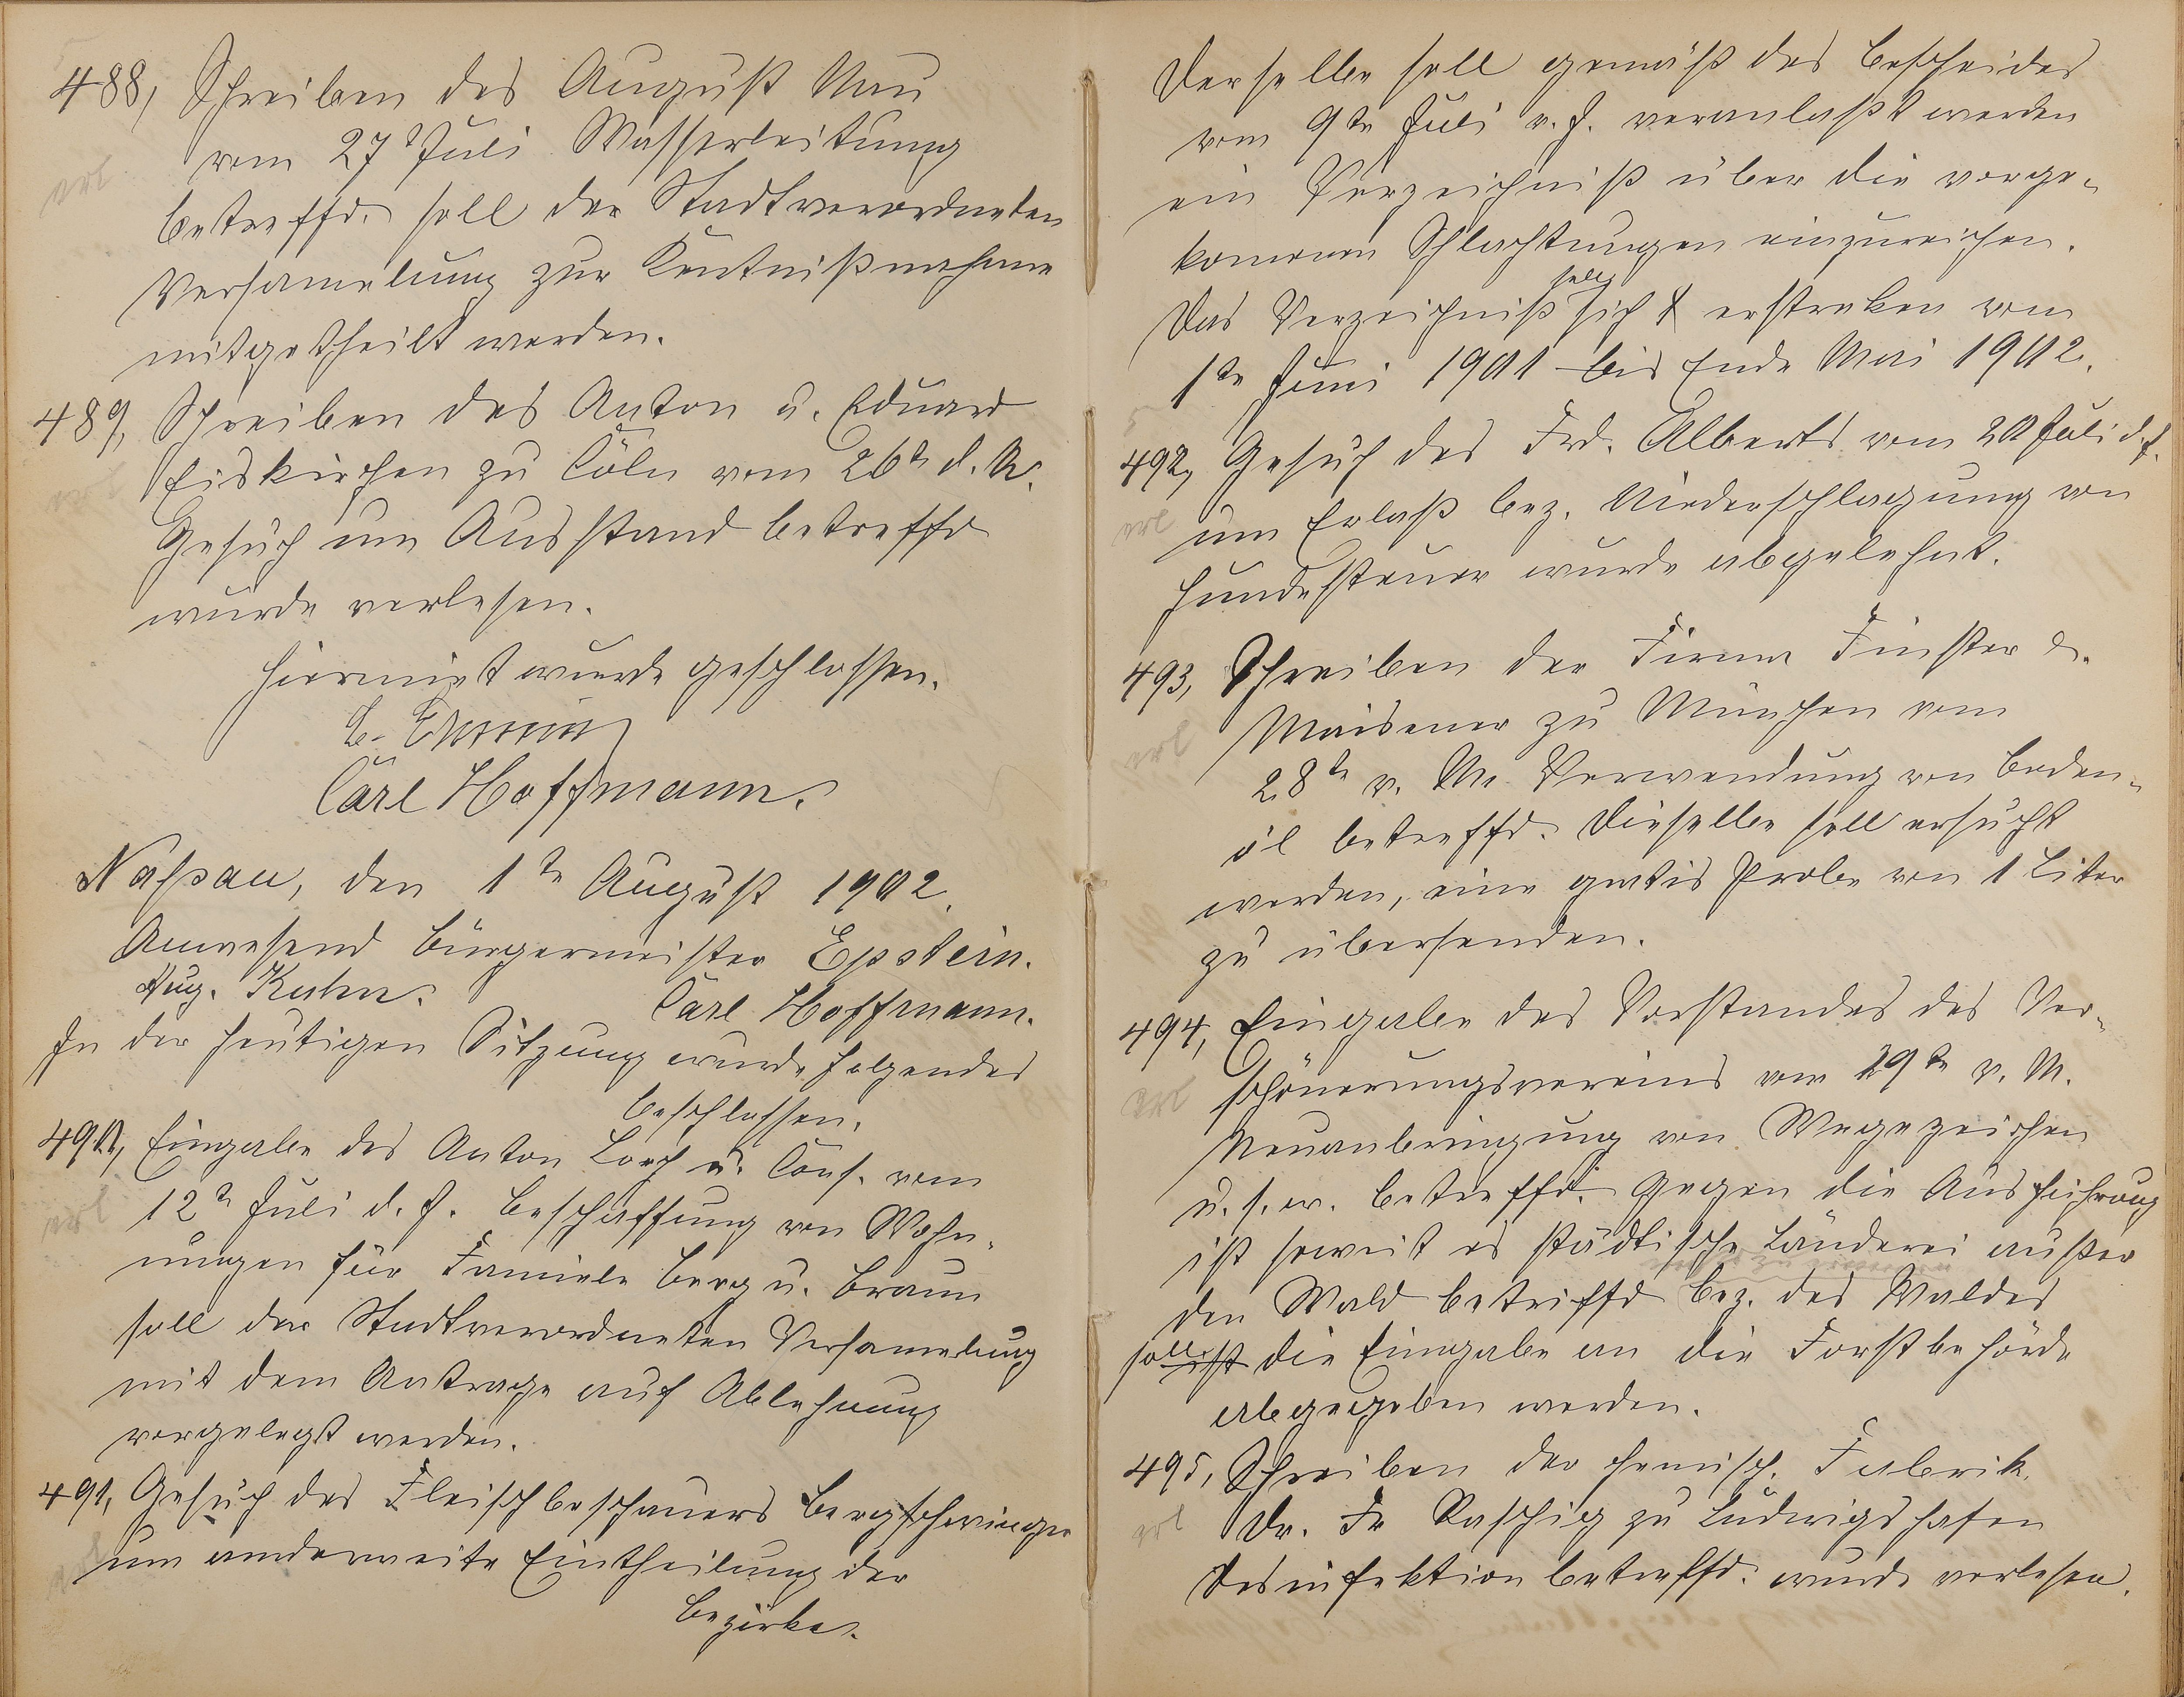 488, Schreiben des August Nau
erl
vom 27t Juli Wasserleitung
betreffd. soll der Stadtverordneten
Versamelung zur Kentnißnahme
mitgetheilt werden.
489, Schreiben des Anton u. Eduard
erl
Eiskirchen zu Cöln vom 26ten d. M.
Gesuch um Ausstand betreffd
wurde verlesen.
Hiermit wurde geschlossen.
Carl Hoffmann.
Nassau, den 1te August 1902.
Anwesend Bürgermeister Epstein.
Aug. Kuhn. Carl Hoffmann.
In der heutigen Sitzung wurde folgendes
beschlossen.
490, Eingabe des Anton Lorch u. Cons. vom
erl
12te Juli d. J. Beschaffung von Wohn-
ungen für Familie Berg u. Braun
soll der Stadtverordneten Versamelung
mit dem Antrage auf Ablehnung
vorgelegt werden.
491, Gesuch des Fleischbeschauers Bergschwinger
erl
um anderweite Eintheilung der
Bezirke.
Derselbe soll gemäß des Bescheides
vom 9te Juli v. J. veranlaßt werden
ein Verzeichniß über die vorge-
komenen Schlachtungen einzureichen.
soll
Das Verzeichniß sich erstreken vom
1te Juni 1901 bis Ende Mai 1902.
492, Gesuch des Frd. Alberts vom 20 Juli d. J.
erl
um Erlaß bez. Niederschlagung von
Hundesteuer wurde abgelehnt.
493, Schreiben der Firma Finster &
erl
Maisener zu München vom
28te v. M. Verwendung von Boden-
öl betreffd. Dieselbe soll ersucht
werden, eine gratis Probe von 1 Liter
zu übersenden.
494, Eingabe des Vorstandes des Ver-
erl
schönerungsvereins vom 29te v. M.
Neuanbringung von Wegezeichen
u. s. w. betreffd. Gegen die Ausführung
ist soweit es städtische Länderei außer
den Wald betriffd bez. des Waldes
soll ist die Eingabe an die Forstbehörde
abgegeben werden.
495, Schreiben der chemisch. Fabrik
erl
Dr. Fr Raschig zu Ludwigshafen
Desinfektion betreffd. wurde verlesen.